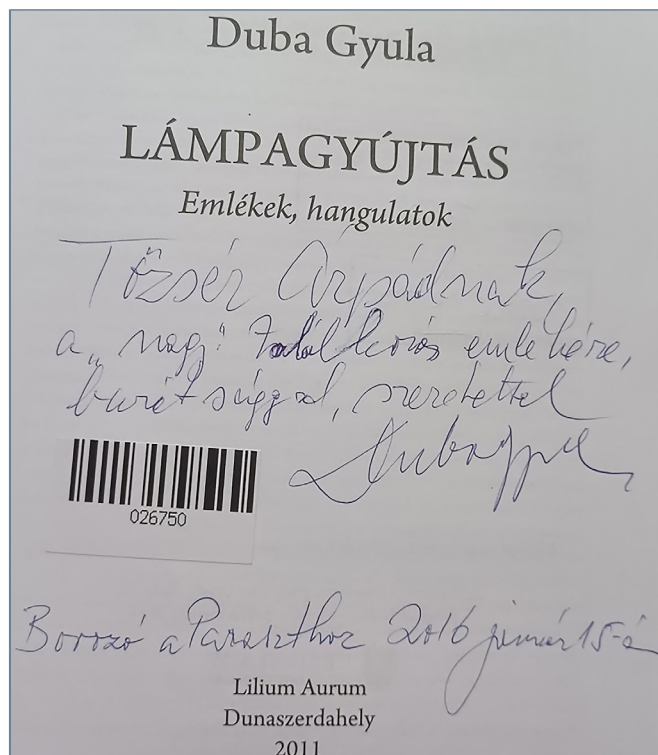 Duba Gyula
LÁMPAGYÚJTÁS
Emlékek, hangulatok
Tőzsér Árpádnak,
a „nagy" találkozás emlékére,
barátsággal, szeretettel
Duba Gyula
026750
Borozó a Paraszthoz 2016 január 15-én
Lilium Aurum
Dunaszerdahely
2011